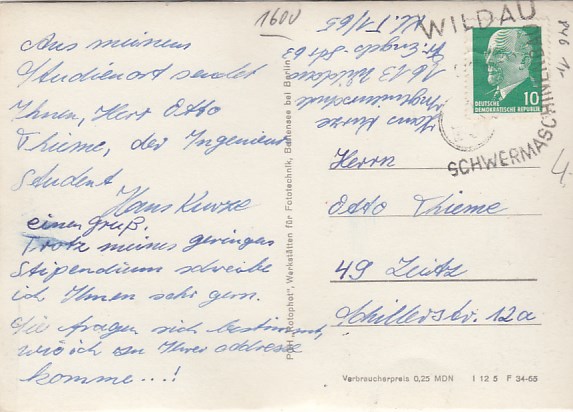 Aus meinem
Studienort sendet
Ihnen, Herr Otto
Thieme, der Ingenieur
Student
Hans Kunze
einen Gruß.
Trotz meines geringen
Stipendiums schreibe
ich Ihnen sehr gern.
Sie fragen sich bestimmt,
wie ich an Ihre Adresse
komme...!
1600
Hans Kunze
Ingenieurschule
1613 Wildau
Fr. Engels-Str 63
Kl. T 1/65
WILDAU
SCHWERMASCHINENB
DEUTSCHE
DEMOKRATISCHE REPUBLIK
10
Herrn
Otto Thieme
49 Zeitz
Schillerstr. 12a
PGH „Rotophot", Werkstätten für Fototechnik, Bestensee bei Berlin
Verbraucherpreis 0,25 MDN I 12 5 F 34-65